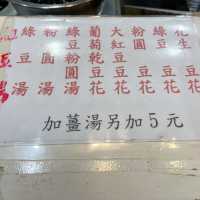 花生豆花
綠豆豆花
粉圓豆花
大紅豆豆花
葡萄乾豆花
綠豆粉圓湯
粉圓湯
綠豆湯
加薑湯另加5元